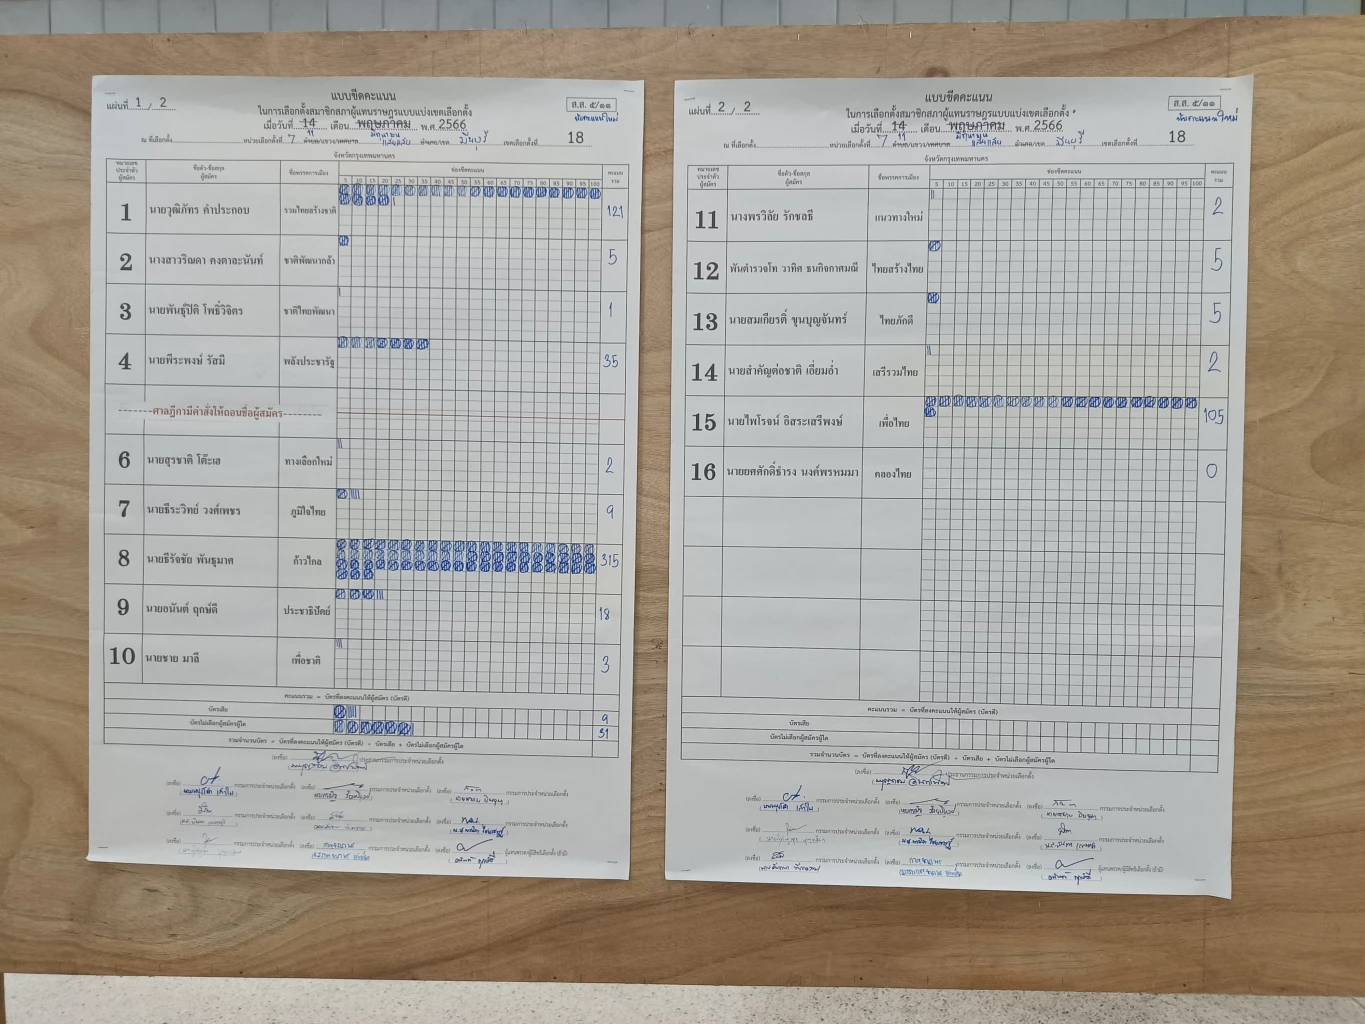 แผ่นที่ 1 / 2
แบบขีดคะแนน
ส.ส. ๕/๑๑
ในการเลือกตั้งสมาชิกสภาผู้แทนราษฎรแบบแบ่งเขตเลือกตั้ง
นับคะแนนใหม่
เมื่อวันที่ 14 เดือน พฤษภาคม พ.ศ. 2566
11 มิถุนายน
ณ ที่เลือกตั้ง หน่วยเลือกตั้งที่ 7 ตำบล/แขวง/เทศบาล แสนแสบ อำเภอ/เขต มีนบุรี เขตเลือกตั้งที่ 18
จังหวัดกรุงเทพมหานคร
หมายเลขประจำตัวผู้สมัคร ชื่อตัว-ชื่อสกุลผู้สมัคร ชื่อพรรคการเมือง ช่องขีดคะแนน คะแนนรวม
5 10 15 20 25 30 35 40 45 50 55 60 65 70 75 80 85 90 95 100
1 นายวุฒิภัทร คำประกอบ รวมไทยสร้างชาติ 121
2 นางสาววริณดา คงตาละนันท์ ชาติพัฒนากล้า 5
3 นายพันธุ์ปิติ โพธิ์วิจิตร ชาติไทยพัฒนา 1
4 นายพีระพงษ์ รัสมี พลังประชารัฐ 35
-------ศาลฎีกามีคำสั่งให้ถอนชื่อผู้สมัคร---------
6 นายสุรชาติ โต๊ะเฮ ทางเลือกใหม่ 2
7 นายธีระวิทย์ วงศ์เพชร ภูมิใจไทย 9
8 นายธีรัจชัย พันธุมาศ ก้าวไกล 315
9 นายอนันต์ ฤกษ์ดี ประชาธิปัตย์ 18
10 นายชาย มาลี เพื่อชาติ 3
คะแนนรวม = บัตรที่ลงคะแนนให้ผู้สมัคร (บัตรดี)
บัตรเสีย 9
บัตรไม่เลือกผู้สมัครผู้ใด 31
รวมจำนวนบัตร = บัตรที่ลงคะแนนให้ผู้สมัคร (บัตรดี) + บัตรเสีย + บัตรไม่เลือกผู้สมัครผู้ใด
(ลงชื่อ) ประธานกรรมการประจำหน่วยเลือกตั้ง
(ลงชื่อ) กรรมการประจำหน่วยเลือกตั้ง (ลงชื่อ) กรรมการประจำหน่วยเลือกตั้ง (ลงชื่อ) กรรมการประจำหน่วยเลือกตั้ง
(ลงชื่อ) กรรมการประจำหน่วยเลือกตั้ง (ลงชื่อ) กรรมการประจำหน่วยเลือกตั้ง (ลงชื่อ) กรรมการประจำหน่วยเลือกตั้ง
(ลงชื่อ) กรรมการประจำหน่วยเลือกตั้ง (ลงชื่อ) กรรมการประจำหน่วยเลือกตั้ง (ลงชื่อ)
แผ่นที่ 2 / 2
แบบขีดคะแนน
ส.ส. ๕/๑๑
ในการเลือกตั้งสมาชิกสภาผู้แทนราษฎรแบบแบ่งเขตเลือกตั้ง
นับคะแนนใหม่
เมื่อวันที่ 14 เดือน พฤษภาคม พ.ศ. 2566
11 มิถุนายน
ณ ที่เลือกตั้ง หน่วยเลือกตั้งที่ 7 ตำบล/แขวง/เทศบาล แสนแสบ อำเภอ/เขต มีนบุรี เขตเลือกตั้งที่ 18
จังหวัดกรุงเทพมหานคร
หมายเลขประจำตัวผู้สมัคร ชื่อตัว-ชื่อสกุลผู้สมัคร ชื่อพรรคการเมือง ช่องขีดคะแนน คะแนนรวม
5 10 15 20 25 30 35 40 45 50 55 60 65 70 75 80 85 90 95 100
11 นางพรวิลัย รักชลธี แนวทางใหม่ 2
12 พันตำรวจโท วาทิศ ธนกิจกาศมณี ไทยสร้างไทย 5
13 นายสมเกียรติ์ ขุนบุญจันทร์ ไทยภักดี 5
14 นายสำคัญต่อชาติ เอี่ยมอ่ำ เสรีรวมไทย 2
15 นายไพโรจน์ อิสระเสรีพงษ์ เพื่อไทย 105
16 นายยศศักดิ์ธำรง นงค์พรหมมา คลองไทย 0
คะแนนรวม = บัตรที่ลงคะแนนให้ผู้สมัคร (บัตรดี)
บัตรเสีย
บัตรไม่เลือกผู้สมัครผู้ใด
รวมจำนวนบัตร = บัตรที่ลงคะแนนให้ผู้สมัคร (บัตรดี) + บัตรเสีย + บัตรไม่เลือกผู้สมัครผู้ใด
(ลงชื่อ) ประธานกรรมการประจำหน่วยเลือกตั้ง
(ลงชื่อ) กรรมการประจำหน่วยเลือกตั้ง (ลงชื่อ) กรรมการประจำหน่วยเลือกตั้ง (ลงชื่อ) กรรมการประจำหน่วยเลือกตั้ง
(ลงชื่อ) กรรมการประจำหน่วยเลือกตั้ง (ลงชื่อ) กรรมการประจำหน่วยเลือกตั้ง (ลงชื่อ) กรรมการประจำหน่วยเลือกตั้ง
(ลงชื่อ) กรรมการประจำหน่วยเลือกตั้ง (ลงชื่อ) กรรมการประจำหน่วยเลือกตั้ง (ลงชื่อ)